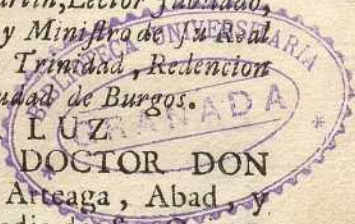 Lector Jubilado,
y Ministro de su Real
Trinidad, Redencion
de Burgos.
LUZ
DOCTOR DON
Arteaga, Abad, y
BIBLIOTECA UNIVERSITARIA
GRANADA